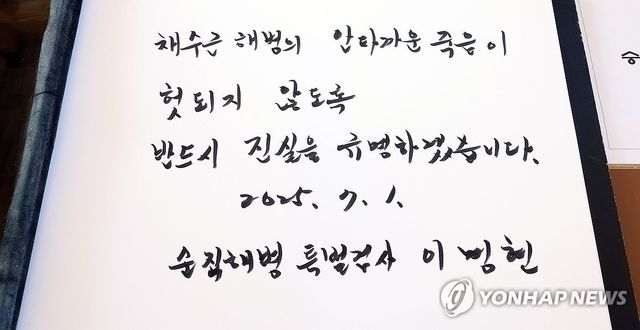 채수근 해병의 안타까운 죽음이
헛되지 않도록
반드시 진실을 규명하겠습니다.
2025. 7. 1.
순직해병 특별검사 이명현
승
YONHAPNEWS